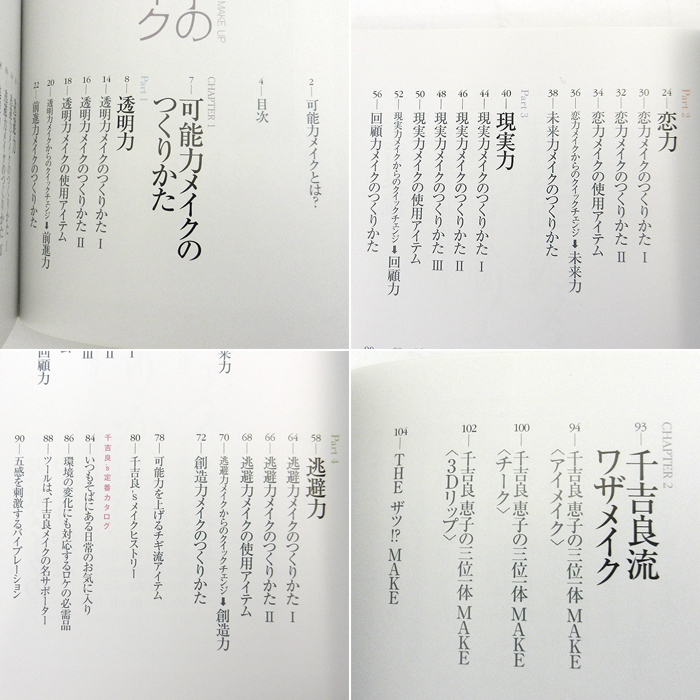 MAKE UP
2 可能力メイクとは?
4 目次
CHAPTER 1
7 可能力メイクの
つくりかた
Part 1
8 透明力
14 透明力メイクのつくりかた Ⅰ
16 透明力メイクのつくりかた Ⅱ
18 透明力メイクの使用アイテム
20 透明力メイクからのクイックチェンジ➡前進力
22 前進力メイクのつくりかた
Part 2
24 恋力
30 恋力メイクのつくりかた Ⅰ
32 恋力メイクのつくりかた Ⅱ
34 恋力メイクの使用アイテム
36 恋力メイクからのクイックチェンジ➡未来力
38 未来力メイクのつくりかた
Part 3
40 現実力
44 現実力メイクのつくりかた Ⅰ
46 現実力メイクのつくりかた Ⅱ
48 現実力メイクのつくりかた Ⅲ
50 現実力メイクの使用アイテム
52 現実力メイクからのクイックチェンジ➡回顧力
56 回顧力メイクのつくりかた
Part 4
58 逃避力
64 逃避力メイクのつくりかた Ⅰ
66 逃避力メイクのつくりかた Ⅱ
68 逃避力メイクの使用アイテム
70 逃避力メイクからのクイックチェンジ➡創造力
72 創造力メイクのつくりかた
78 可能力を上げるチギ流アイテム
80 千吉良'sメイクヒストリー
千吉良's定番力カタログ
84 いつもそばにある日常のお気に入り
86 環境の変化にも対応するロケの必需品
88 ツールは、千吉良メイクの名サポーター
90 五感を刺激するバイブレーション
CHAPTER 2
93 千吉良流
ワザメイク
94 千吉良恵子の三位一体 MAKE
〈アイメイク〉
100 千吉良恵子の三位一体 MAKE
〈チーク〉
102 千吉良恵子の三位一体 MAKE
〈3Dリップ〉
104 THE ザッ!? MAKE